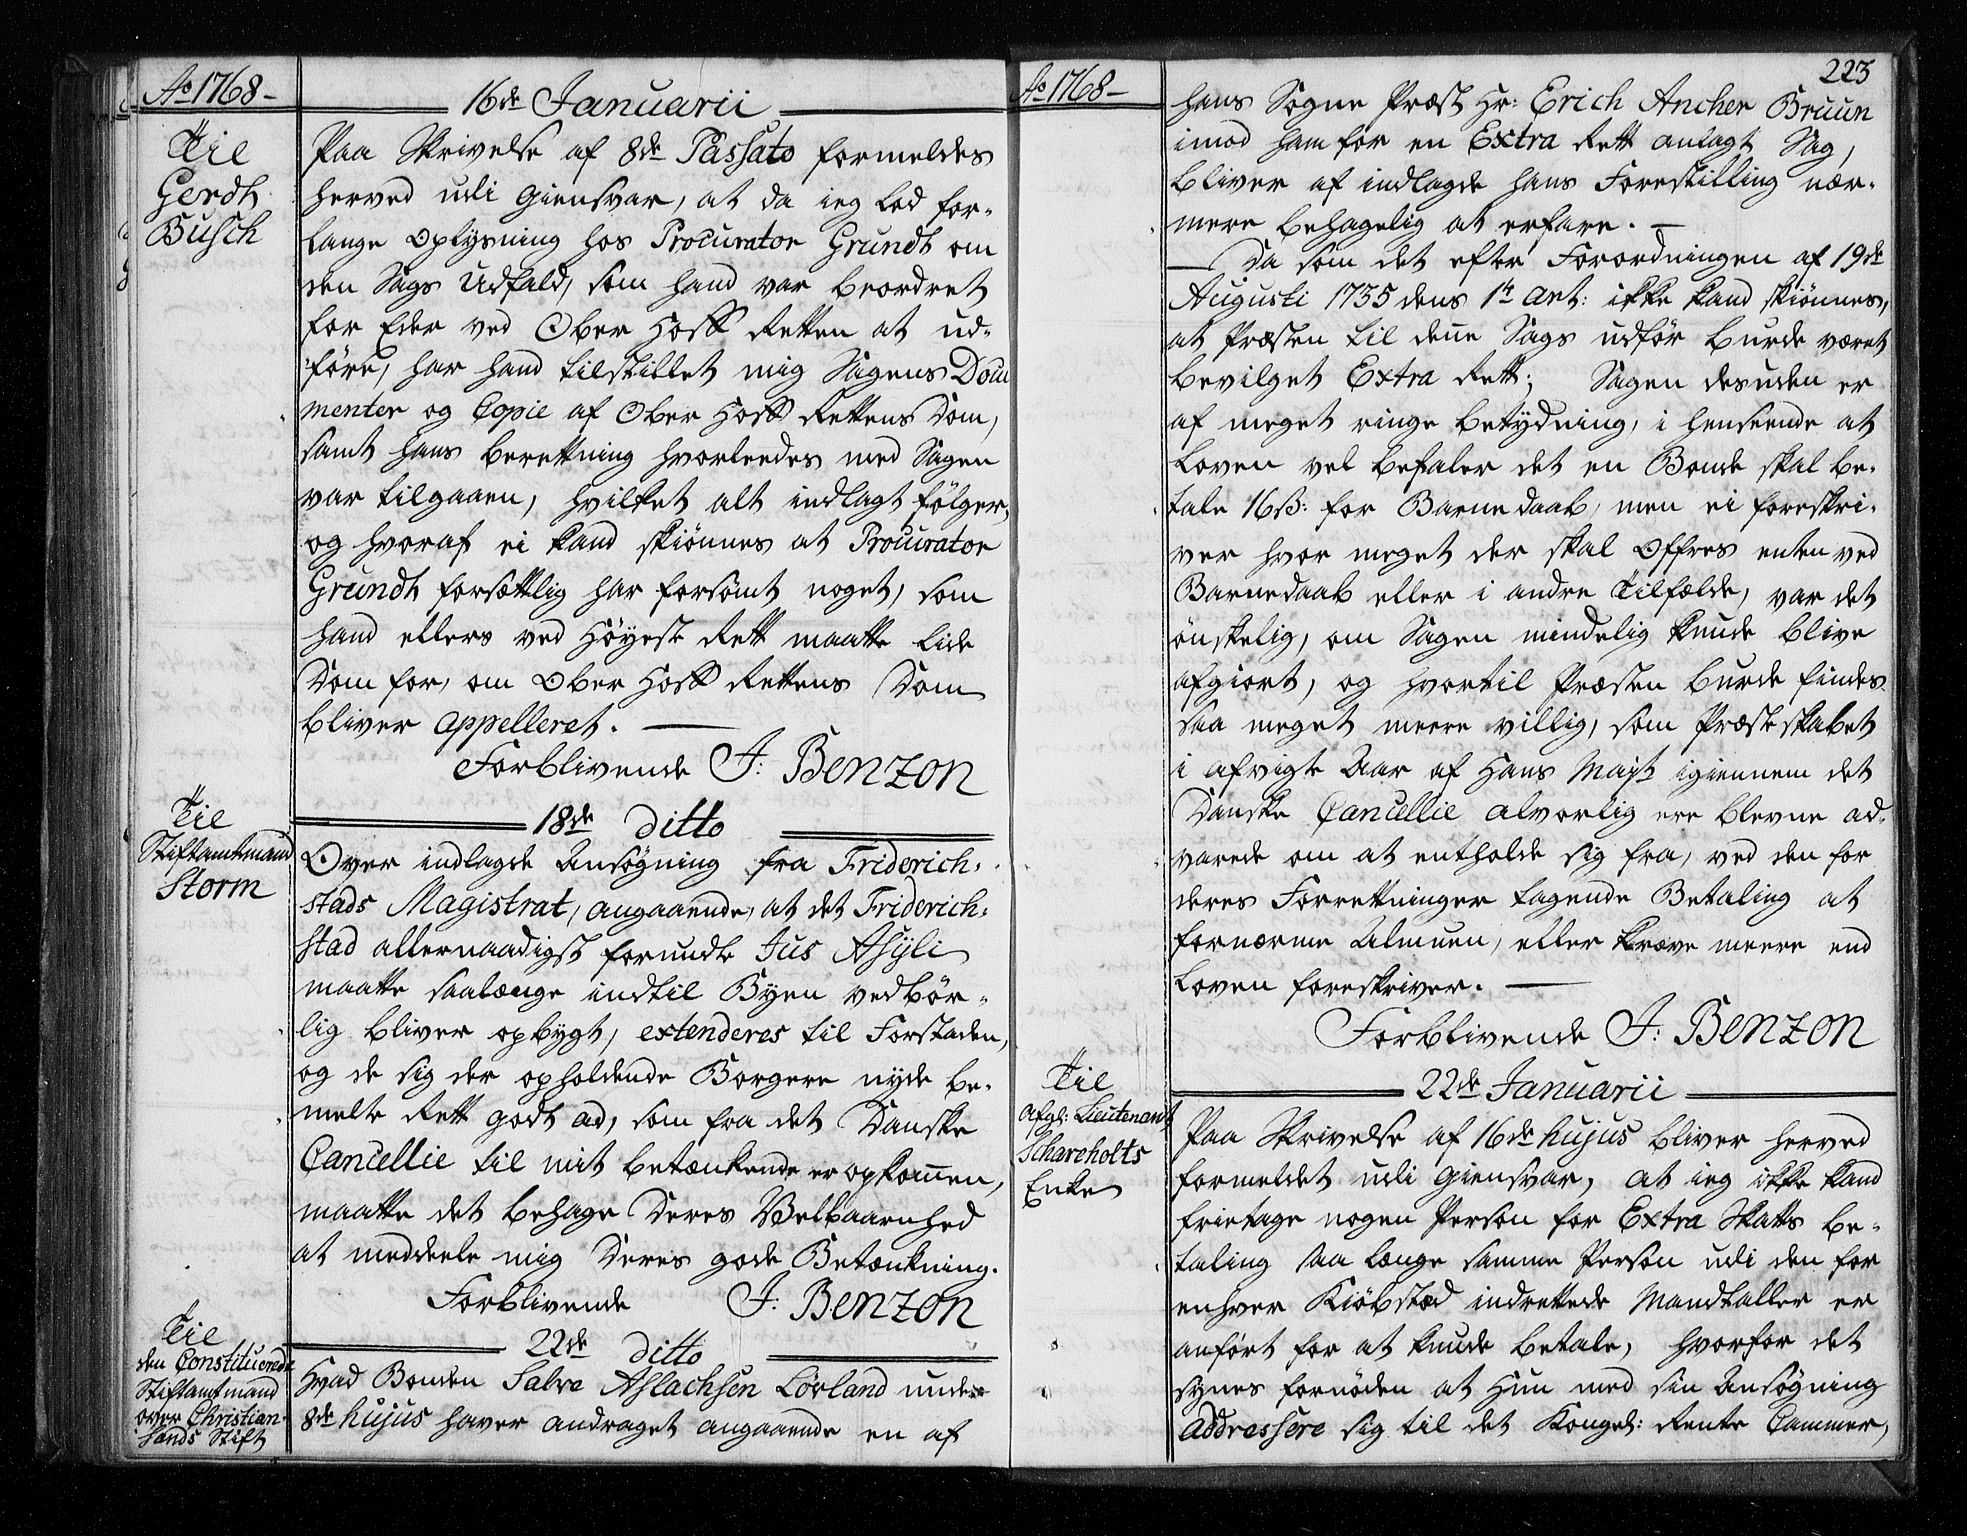 Ao 1768 –
16de Januarii
Til
Gerdt
Busch
Paa Skrivelse af 8de Passato formeldes
herved udi giensvar, at da ieg lod for-
lange Oplysning hos Procurator Grundt om
den Sags Udfald, som hand var beordret
for Eder ved Ober Hoff Retten at ud-
føre, har hand tilstillet mig Sagens Docu
menter og Copie af Ober Hoff Rettens Dom,
samt hans berettning hvorleedes med Sagen
var tilgaaen, hvilket alt indlagt følger,
og hvoraf ei kand skiønnes at Procurator
Grundt forsættlig har forsømt noget, som
hand ellers ved Høyeste Rett maatte lide
Dom for, om Ober Hoff Rettens Dom
bliver appelleret. —
Forblivende J: Benzon
18de ditto
Til
Stiftamtmand
Storm
Over indlagde Ansøgning fra Friderich-
stads Magistrat, angaaende, at det Friderich-
stad allernaadigst forundte Jus Asyli
maatte saalænge indtil Byen vedbør-
lig bliver opbygt, extenderes til Forstaden,
og de sig der opholdende Borgere nyde be-
melte Rett godt ad, som fra det Danske
Cancellie til mit betænkende er opkommen,
maatte det behage Deres Velbaarenhed
at meddeele mig Deres gode Betænkning.
Forblivende J: Benzon
22de ditto
Til
den Constituerede
Stiftamtmand
over Christian-
sands Stift
Hvad Bonden Salve Aslachsen Lørland under
8de hujus haver andraget angaaende en af
Ao 1768 –
223
hans Sogne Præst Hr: Erich Ancher Bruun
imod ham for en Extra Rett anlagt Sag,
bliver af indlagde hans Forestilling nær-
mere behagelig at erfare. —
— Da som det efter Forordningen af 19de
Augusti 1735 dens 1te Art: ikke kand skiønnes,
at Præsten til denne Sags udfør burde været
bevilget Extra Rett; Sagen desuden er
af meget ringe betydning, i henseende at
Loven vel befaler det en Bonde skal be-
tale 16ß: for Barnedaab, men ei foreskri-
ver hvor meget der skal Offres enten ved
Barnedaab eller i andre Tilfælde, var det
ønskelig, om Sagen mindelig kunde blive
afgiort, og hvortil Præsten burde findes
saa meget meere villig, som Præsteskabet
i afvigte Aar af Hans Mayt igiennem det
Danske Cancellie alvorlig ere blevne ad-
varede om at entholde sig fra, ved den for
deres Forrettninger tagende Betaling at
fornærme Almuen, eller kræve meere end
Loven foreskriver. —
Forblivende J: Benzon
22de Januarii
Til
afgl: Lieutenant
Schareholts
Enke
Paa Skrivelse af 16de hujus bliver herved
formeldet udi giensvar, at ieg ikke kand
frietage nogen Person for Extra Skatts be-
taling saa længe samme Person udi den for
enhver Kiøbstæd indrettede Mandtaller er
anført for at kunde betale, hvorfor det
synes fornøden at Hun med sin Ansøgning
addressere sig til det Kongel: Rente Cammer,